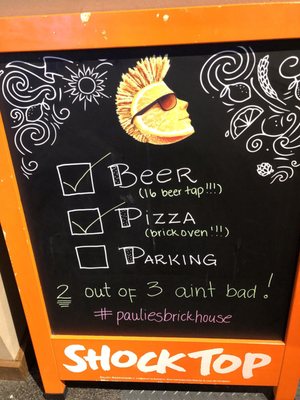 BEER
(16 beer tap!!!)
PIZZA
(brick oven!!!)
PARKING
2 out of 3 aint bad!
#pauliesbrickhouse
SHOCK TOP